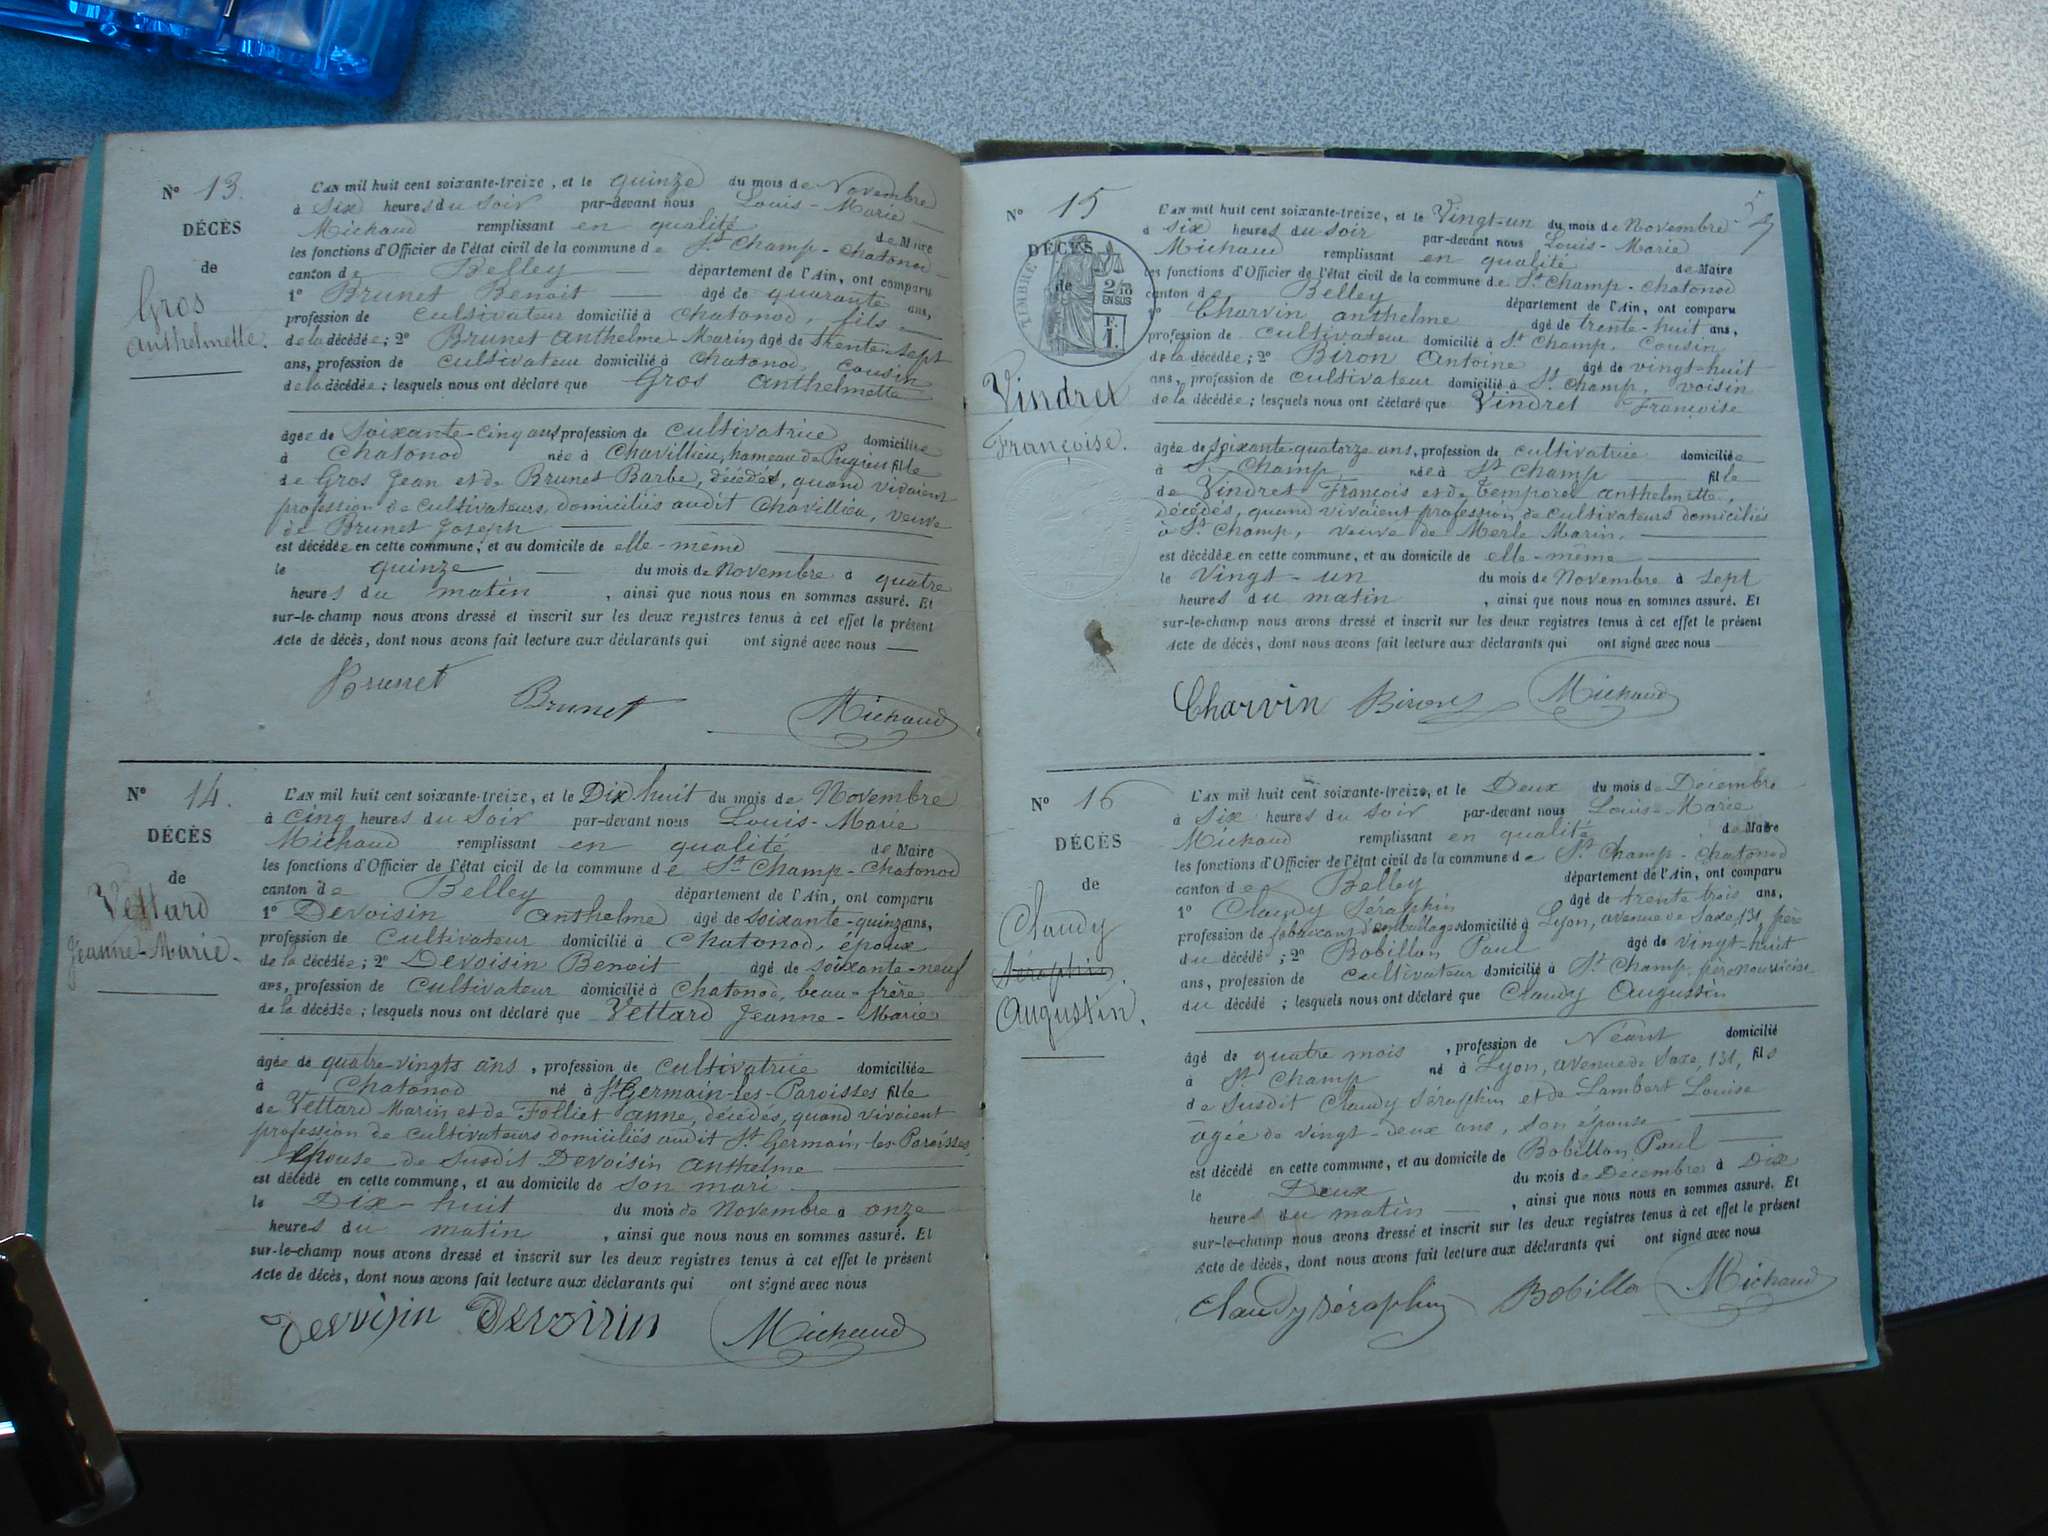 N° 13.
DÉCÈS
de
Gros
anthelmette.
L'AN mil huit cent soixante-treize, et le quinze du mois de Novembre
à Six heures du Soir par-devant nous Louis-Marie
Michaud remplissant en qualité de Maire
les fonctions d'Officier de l'état civil de la commune de St Champ-Chatonod
canton de Belley département de l'Ain, ont comparu
1° Brunet Benoit âgé de quarante ans,
profession de cultivateur domicilié à Chatonod, fils
de la décédée; 2° Brunet Anthelme-Marin âgé de trente-sept
ans, profession de cultivateur domicilié à Chatonod, cousin
de la décédée; lesquels nous ont déclaré que Gros Anthelmette
âgée de soixante-cinq ans, profession de cultivatrice domiciliée
à Chatonod née à Chavillieu, hameau de Pugieu fille
de Gros Jean et de Brunet Barbe, décédés, quand vivaient
profession de cultivateurs, domiciliés audit Chavillieu, veuve
de Brunet Joseph
est décédée en cette commune, et au domicile de elle-même
le quinze du mois de Novembre à quatre
heures du matin, ainsi que nous nous en sommes assuré. Et
sur-le-champ nous avons dressé et inscrit sur les deux registres tenus à cet effet le présent
Acte de décès, dont nous avons fait lecture aux déclarants qui ont signé avec nous
Brunet Brunet Michaud
N° 14.
DÉCÈS
de
Vettard
Jeanne-Marie.
L'AN mil huit cent soixante-treize, et le Dix huit du mois de Novembre
à cinq heures du Soir par-devant nous Louis-Marie
Michaud remplissant en qualité de Maire
les fonctions d'Officier de l'état civil de la commune de St Champ-Chatonod
canton de Belley département de l'Ain, ont comparu
1° Devoisin Anthelme âgé de soixante-quinze ans,
profession de cultivateur domicilié à Chatonod, époux
de la décédée; 2° Devoisin Benoit âgé de soixante-neuf
ans, profession de cultivateur domicilié à Chatonod, beau-frère
de la décédée; lesquels nous ont déclaré que Vettard Jeanne-Marie
âgée de quatre-vingts ans, profession de cultivatrice domiciliée
à Chatonod né à St Germain-les-Paroisses fille
de Vettard Marin et de Folliet Janne, décédés, quand vivaient
profession de cultivateurs domiciliés audit St Germain-les-Paroisses,
épouse de susdit Devoisin Anthelme
est décédé en cette commune, et au domicile de son mari
le Dix-huit du mois de Novembre à onze
heures du matin, ainsi que nous nous en sommes assuré. Et
sur-le-champ nous avons dressé et inscrit sur les deux registres tenus à cet effet le présent
Acte de décès, dont nous avons fait lecture aux déclarants qui ont signé avec nous
Devoisin Devoisin Michaud
N° 15
DÉCÈS
de
TIMBRE
2/10
EN SUS
F.
1.
Vindret
Françoise.
L'AN mil huit cent soixante-treize, et le Vingt-un du mois de Novembre
à six heures du soir par-devant nous Louis-Marie
Michaud remplissant en qualité de Maire
les fonctions d'Officier de l'état civil de la commune de St Champ-Chatonod
canton de Belley département de l'Ain, ont comparu
1° Charvin Anthelme âgé de trente-huit ans,
profession de cultivateur domicilié à St Champ, cousin
de la décédée; 2° Biron Antoine âgé de vingt-huit
ans, profession de cultivateur domicilié à St Champ, voisin
de la décédée; lesquels nous ont déclaré que Vindret Françoise
âgée de soixante-quatorze ans, profession de cultivatrice domiciliée
à St Champ née à St Champ fille
de Vindret François et de Temporal Anthelmette,
décédés, quand vivaient profession de cultivateurs domiciliés
à St Champ, veuve de Merle Marin.
est décédée en cette commune, et au domicile de elle-même
le Vingt-un du mois de Novembre à sept
heures du matin, ainsi que nous nous en sommes assuré. Et
sur-le-champ nous avons dressé et inscrit sur les deux registres tenus à cet effet le présent
Acte de décès, dont nous avons fait lecture aux déclarants qui ont signé avec nous
Charvin Biron Michaud
N° 16
DÉCÈS
de
Claudy
Séraphin
Augustin.
L'AN mil huit cent soixante-treize, et le Deux du mois de Décembre
à Six heures du soir par-devant nous Louis-Marie
Michaud remplissant en qualité de Maire
les fonctions d'Officier de l'état civil de la commune de St Champ-Chatonod
canton de Belley département de l'Ain, ont comparu
1° Claudy Séraphin âgé de trente trois ans,
profession de fabricant d'emballages domicilié à Lyon, avenue de Saxe, 131, père
du décédé; 2° Bobillon Paul âgé de vingt-huit
ans, profession de cultivateur domicilié à St Champ, père nourricier
du décédé; lesquels nous ont déclaré que Claudy Augustin
âgé de quatre mois, profession de Néant domicilié
à St Champ né à Lyon, avenue de Saxe, 131, fils
de susdit Claudy Séraphin et de Lambert Louise
âgée de vingt-deux ans, son épouse
est décédé en cette commune, et au domicile de Bobillon Paul
le Deux du mois de Décembre à Dix
heures du matin, ainsi que nous nous en sommes assuré. Et
sur-le-champ nous avons dressé et inscrit sur les deux registres tenus à cet effet le présent
Acte de décès, dont nous avons fait lecture aux déclarants qui ont signé avec nous
Claudy Séraphin Bobillon Michaud